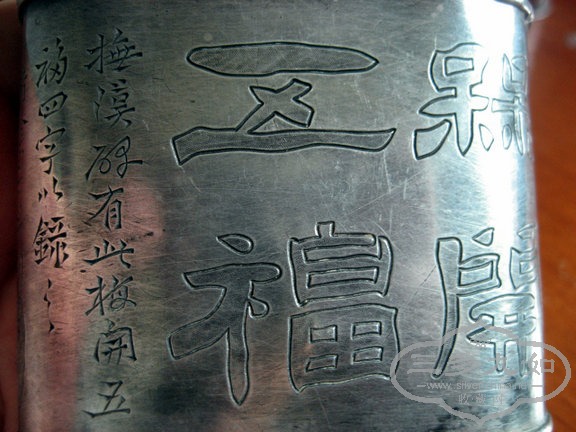 槑開
五福
撫漢碑有此梅開五
福四字以錄之